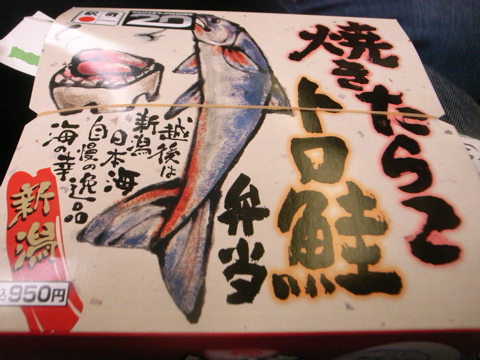 焼きたらこ
トロ鮭
弁当
越後は
新潟
日本海
自慢の逸品
海の幸
新潟
込950円